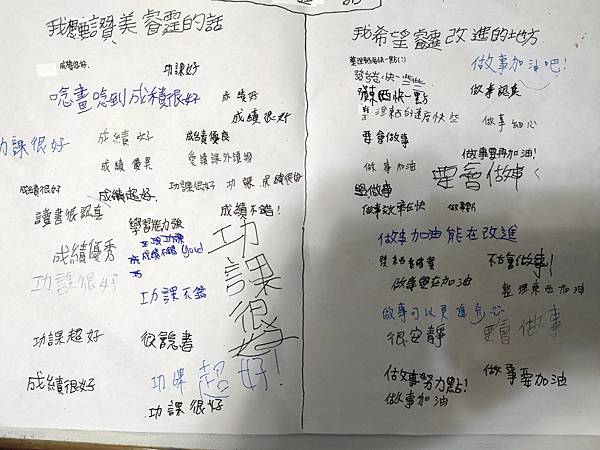 我想讚美睿霆的話
成績很好.
功課好
唸書唸到成績很好
成績好
成績很好
功課很好
成績好
成績優良
成績優異
愛讀課外讀物
成績很好
成績超好.
功課很好
功課.成績很好
讀書很認真
學習能力強
成績不錯!
成績優秀
成績不錯(good)
功課很好
功課很好
功課不錯
功課超好
很會讀書
成績很好
功課超好!
功課很好
我希望睿霆改進的地方
做事加油吧!
做事認真
做事細心
要會做事
做事加油
做事要再加油!
要會做事
學做事
做事效率在快
做事加油能在改進
不太會做事!
做事要在加油
整理東西加油
做事可以更進步
很安靜
要會做事
做事努力點!
做事要加油
做事加油